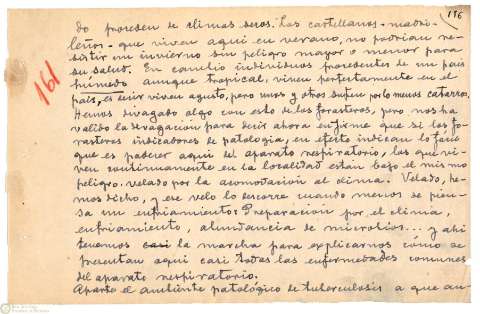 116
161
do proceden de climas secos. Los castellanos - madri-
leños - que viven aqui en verano, no podrian re-
sistir un invierno sin peligro mayor o menor para
su salud. En cambio individuos procedentes de un pais
humedo aunque tropical, viven perfectamente en el
pais, es decir viven agusto, pero unos y otros sufren por lo menos catarros.
Hemos divagado algo con esto de los forasteros, pero nos ha
valido la divagacion para decir ahora en firme que si los fo-
rasteros indicadores de patologia, en efecto indican lo facil
que es padecer aqui del aparato respiratorio, los que vi-
ven continuamente en la localidad estan bajo el mismo
peligro. velado por la acomodacion al clima. Velado, he-
mos dicho, y ese velo lo descorre cuando menos se pien-
sa un enfriamiento: Preparacion por el clima,
enfriamiento, abundancia de microbios... y ahi
tenemos casi la marcha para explicarnos cómo se
presentan aqui casi todas las enfermedades comunes
del aparato respiratorio.
Aparte el ambiente patológico de tuberculosis a que an